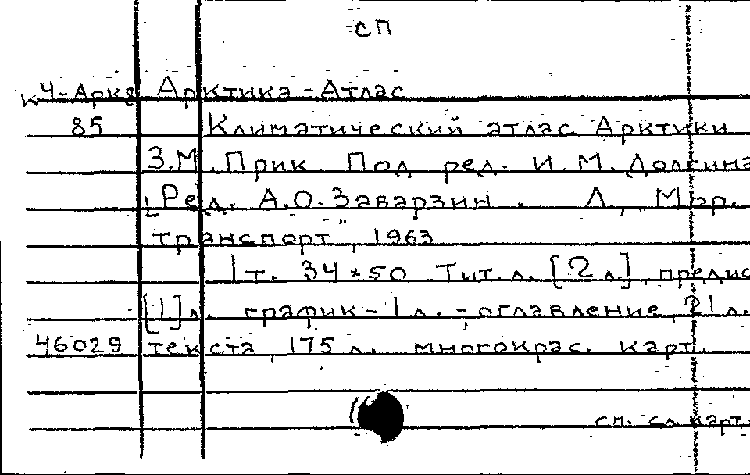 сп
к4-Аркт Арктика - Атлас
85 Климатический атлас Арктики
З.М. Прик Под ред. И.М. Долгина
[Ред. А.О. Заварзин. Л., Мор.
транспорт", 1963
1 т. 34*50 Тит. л. [2 л.], предис
[1] л. график - 1 л. - оглавление, 21 л.
46029 текста, 175 л. многокрас. карт.
см. сл карт